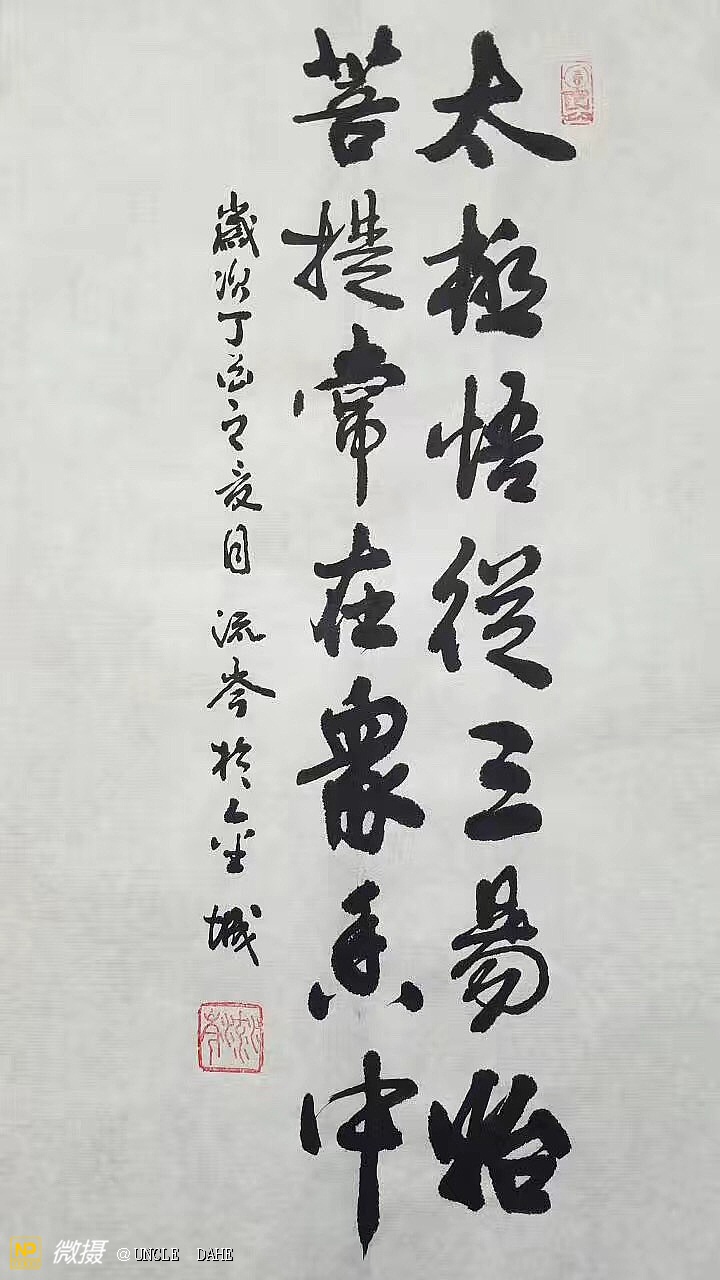 太極悟從三易始
菩提常在眾香中
歲次丁酉之夏月 流岑於金城
微摄 @UNCLE DAHE